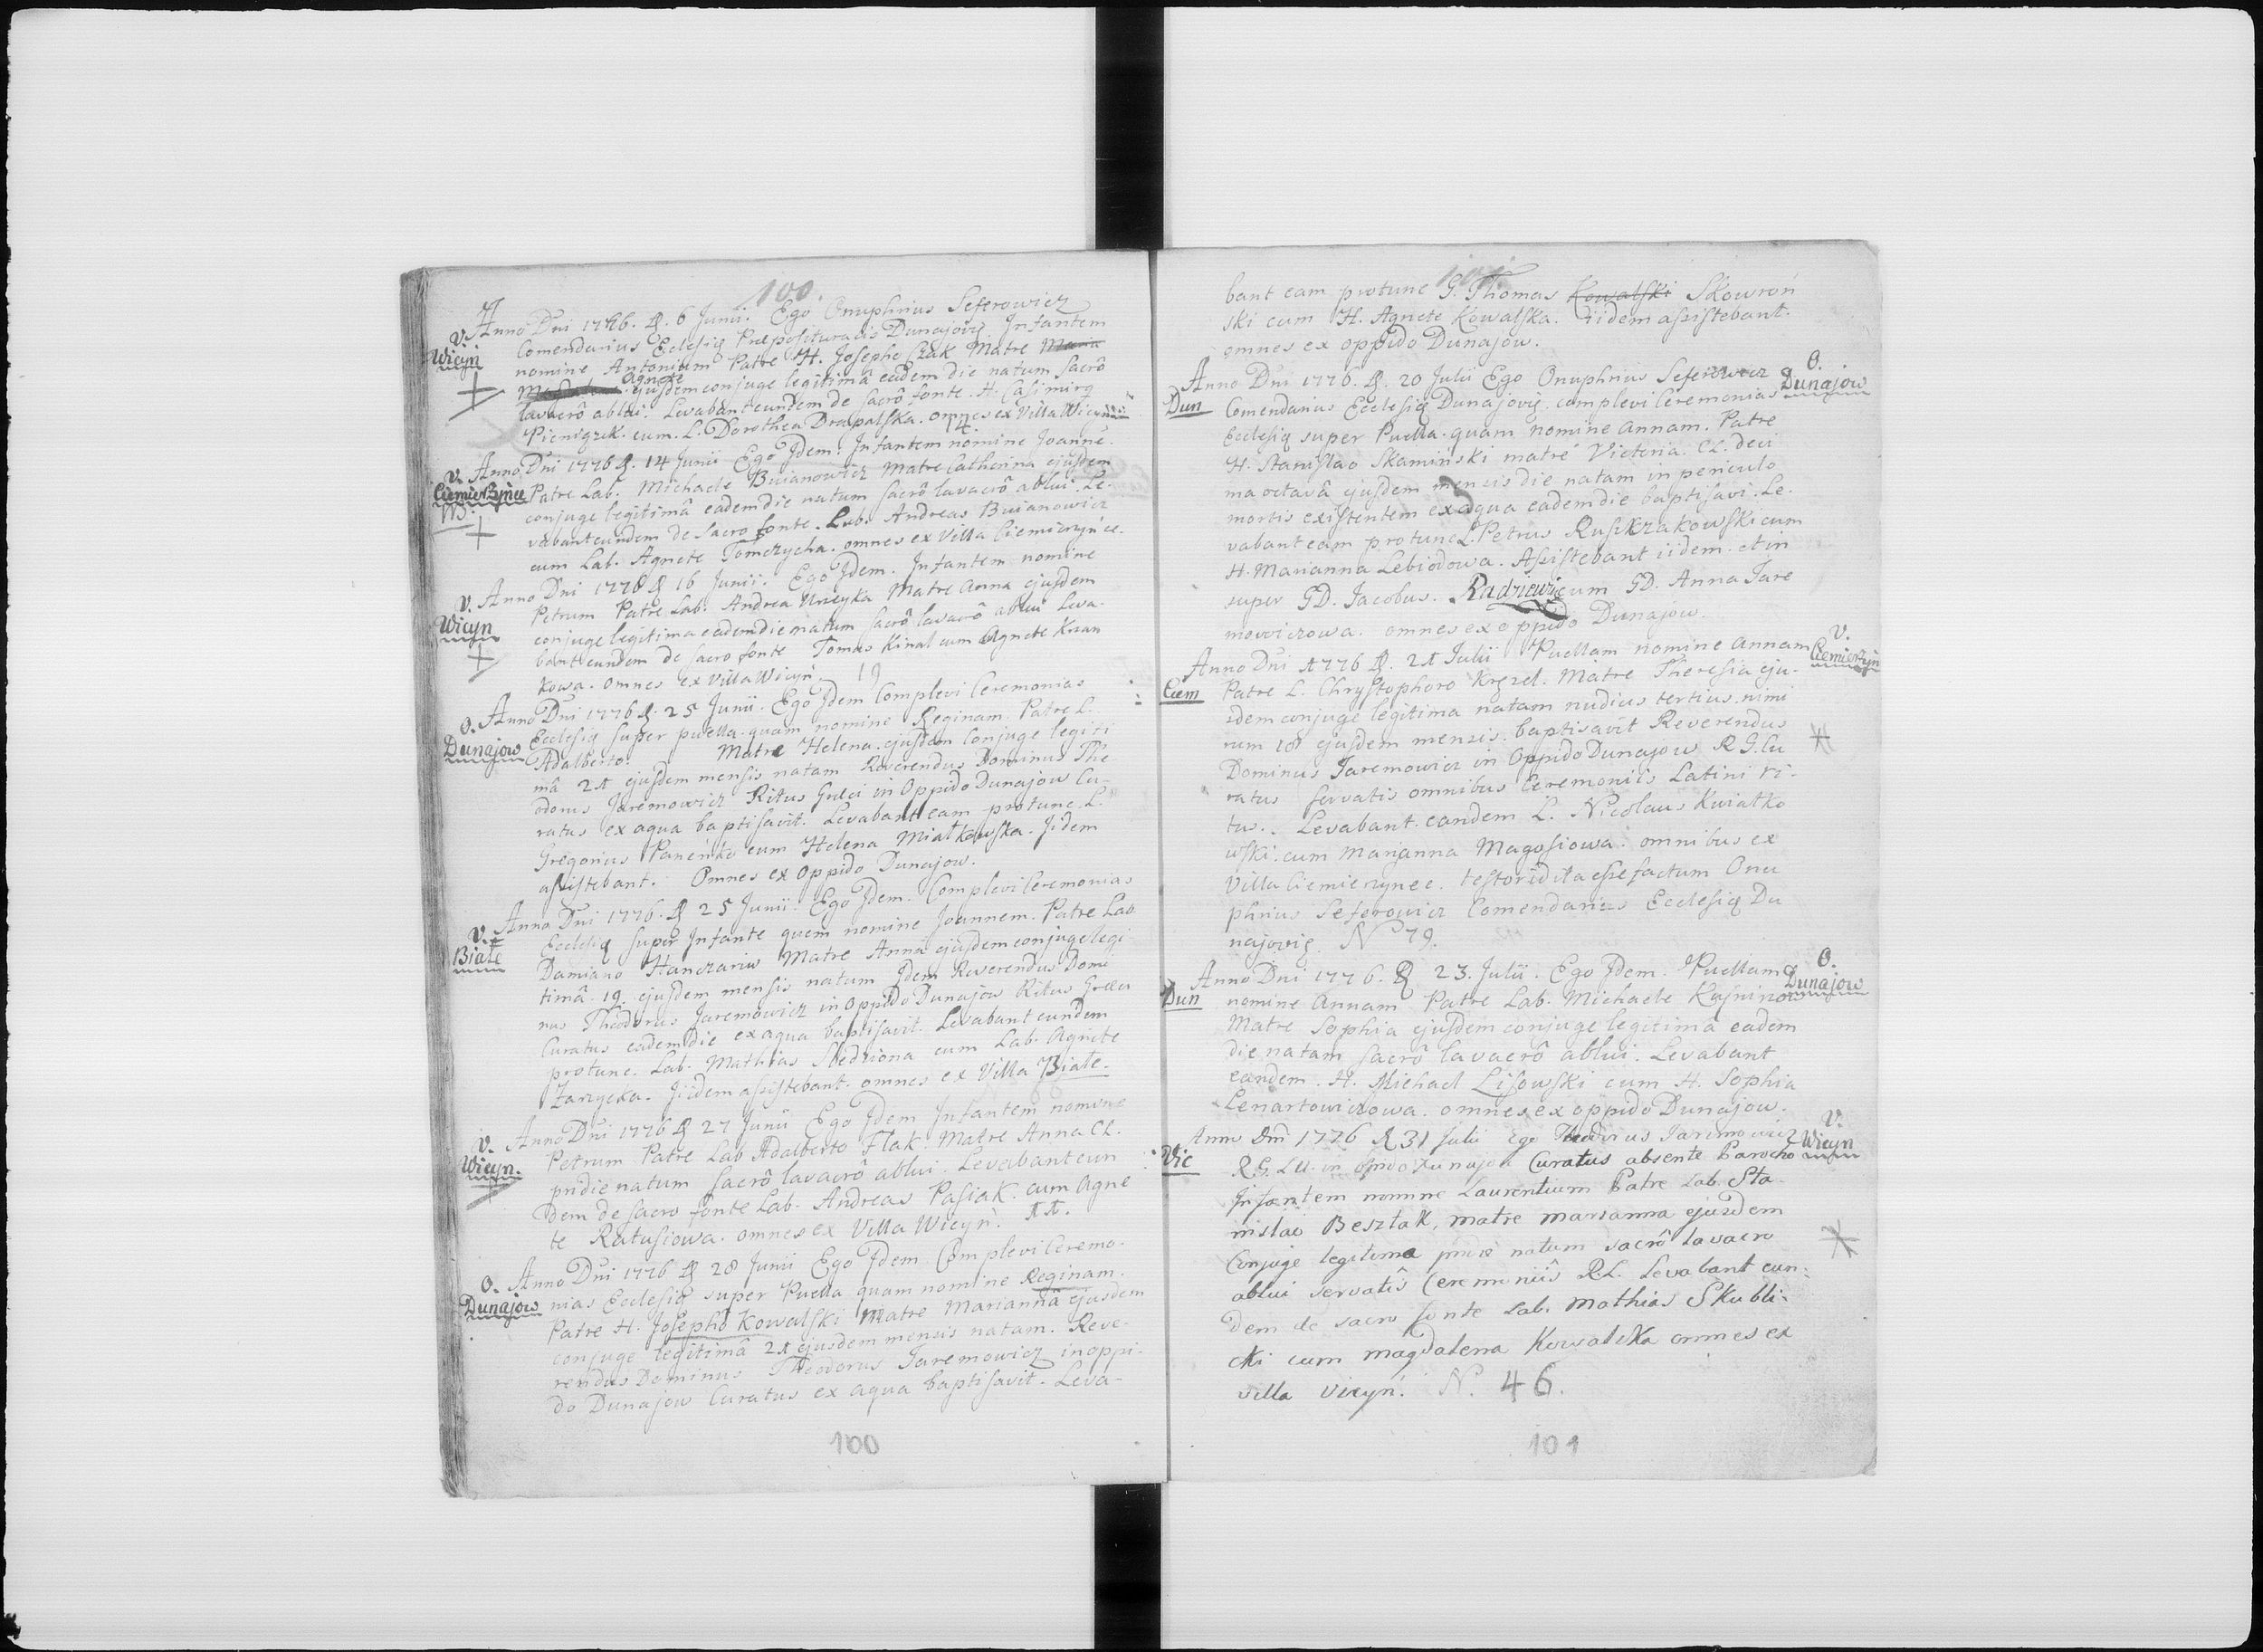 100.
Anno Dni 1776. D. 6 Junii. Ego Onuphrius Seferowicz
V. Comendarius Eclesię Præpositturalis Dunajovię Infantem
Wicyń nomine Antonium Patre H. Josepho Czak Matre Maria
Agnete ejusdem conjuge legitimâ eadem die natum Sacrô
lavacrô ablui. Levabant eundem de sacrô fonte. H. Casimirę
Pieniązek. cum. L. Dorothea Drapalska. omnes ex Villa Wicyń
14.
Anno Dni 1776 D. 14 Junii Ego Idem. Infantem nomine Joanne.
V. Ciemierzyńce Patre Lab. Michaele Buianowicz Matre Catherina ejusdem
conjuge legitimâ eadem die natum sacrô lavacrô ablui. Le-
vabant eundem de Sacro fonte. Lab. Andreas Buianowicz
cum Lab. Agnete Tomczycha. omnes ex Villa Ciemierzyńce.
V. Anno Dni 1776 D 16 Junii. Ego Idem. Infantem nomine
Wicyn Petrum Patre Lab. Andrea Matre Anna ejusdem
conjuge legitima eadem die natum sacrô lavacrô ablui Leva-
bant eundem de sacro fonte Tomas Kinal cum Agnete Kran
kowa. omnes ex Villa Wicyń. 19
O. Anno Dni 1776 D. 25 Junii. Ego Idem Complevi Ceremonias
Ecclesię super puella. quam nomine Reginam. Patre L.
Dunajow Adalberto. Matre Helena. ejusdem Conjuge legiti
mâ 21 ejusdem mensis natam Reverendus Dominus The
odorus Jaremowicz Ritus Græci in Oppido Dunajow Cu-
ratus ex aqua baptisavit. Levabant eam protunc. L.
Gregorius Panenko cum Helena Miałkowska. Iidem
assistebant. Omnes ex Oppido Dunajow.
Anno Dni 1776. D 25 Junii. Ego Idem. Complevi Ceremonias
V. Ecclesię super Infante quem nomine Joannem. Patre Lab
Białe Damiano Hanczariw Matre Annâ ejusdem conjuge legi
timâ. 19. ejusdem mensis natum Idem Reverendus Domi
nus Theodorus Jaremowicz in Oppido Dunajow Ritus Græci
Curatus eadem die ex aqua baptisavit. Levabant eundem
protunc. Lab. Mathias Sledziona cum Lab. Agnete
Zarzycka. Iidem assistebant. omnes ex Villa Białe.
V. Anno Dni 1776 D 27 Junii Ego Idem Infantem nomine
Wicyn. Petrum Patre Lab Adalberto Flak. Matre Anna CL.
pridie natum sacrô lavacrô ablui. Levabant eun
dem de sacro fonte Lab. Andreas Pasiak. cum Agne
te Ratusiowa. omnes ex Villa Wicyń. 11.
O. Anno Dni 1776 D 28 Junii Ego Idem. Complevi Ceremo-
Dunajow nias Ecclesię super Puella quam nomine Reginam.
Patre H. Josepho Kowalski Matre Mariannâ ejusdem
conjuge legitimâ 21 ejusdem mensis natam. Reve-
rendus Dominus Theodorus Jaremowicz in oppi-
do Dunajow Curatus ex aqua baptisavit. Leva-
100
101.
bant eam protunc G. Thomas Kowalski Skowroń
ski cum H. Agnete Kowalska. iidem assistebant.
omnes ex oppido Dunajow.
Anno Dni 1776. D. 20 Julii Ego Onuphrius Seferowicz O. Dunajow
Dun Comendarius Ecclesię Dunajovię complevi Ceremonias
Ecclesię super Puella. quam nomine Annam. Patre
H. Stanislao Skaminski matre Victoria. CL. deci
ma octavâ ejusdem mensis die natam in periculo
mortis existentem ex aqua eadem die baptisavi. Le-
vabant eam protunc L. Petrus Ruszkrakowski cum
H. Marianna Lebiodowa. Assistebant iidem. et in
super GD. Jacobus. Radziewic cum GD. Anna Jare
mowiczowa. omnes ex oppido Dunajow.
Anno Dni 1776 D. 21 Julii Puellam nomine Annam V. Ciemierzyn
Ciem Patre L. Chrystophoro Krezel. Matre Theresia eju-
sdem conjuge legitima natam nudius tertius nimi
rum 18 ejusdem mensis. baptisavit Reverendus
Dominus Jaremowicz in Oppido Dunajow R G. Cu
ratus servatis omnibus Ceremoniis Latini ri-
tus.. Levabant. eandem L. Nicolaus Kwiatko
wski. cum Marianna Magosiowa. omnibus ex
Villa Ciemierzynce. testor id ita esse factum Onu
phrius Seferowicz Comendarius Ecclesię Du
najovię. N 79.
Anno Dni 1776. D 23. Julii. Ego Idem. Puellam O. Dunajow
Dun nomine Annam Patre Lab. Michaele
Matre Sophia ejusdem conjuge legitimâ eadem
die natam sacrô lavacrô ablui. Levabant
eandem. H. Michael Lisowski cum H. Sophia
Lenartowiczowa. omnes ex oppido Dunajow.
Anno Dni 1776 D 31 Julii Ego Theodorus Jaremowicz V. Wicyn
Vic R.G. in Dunajow Curatus absente Parocho
Infantem nomine Laurentium Patre Lab. Sta-
nislao Besztak, matre marianna ejusdem
Conjuge legitima pridie natum sacrô lavacro
ablui servatis Ceremoniis R.L. Levabant eun-
dem de sacro fonte Lab. Mathias Skubli-
cki cum magdalena Kowalska omnes ex
villa Vicyń. N. 46.
101